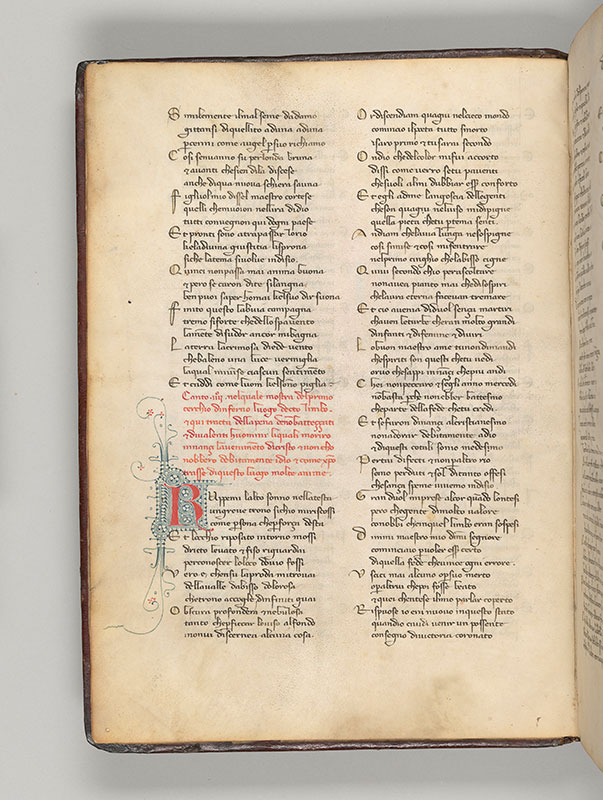 Similemente il mal seme dadamo
gittansi di quel lito aduna aduna
p cenni come augel p suo richiamo
Cosi sen uanno su per londa bruna
& auanti che sien di la discese
anche di qua nuoua schiera sauna
Figliuol mio disse l maestro cortese
quelli che muoion nellira didio
tutti conuegnon qui dogni paese
Et pronti sono atrapassar lo rio
che la diuina giustitia li sprona
si che la tema si uolue indisio
Quinci non passa mai anima buona
& pero se caron di te si lagna
ben puoi saper homai chel suo dir suona
Finito questo la buia campagna
tremo si forte che dello spauento
la mēte di sudor ancor mi bagna
La terra lacrimosa diede uento
che baleno una luce uermiglia
la qual mi uinse ciascun sentimēto
Et caddi come luom che l sonno piglia
Canto .iiij. nel quale mostra del primo
cerchio dinferno luogo decto limbo
& qui tracta della pena de nō battezzati
& de ualenti huomini li quali moriro
innanzi lauenimēto di cristo & non cho
nobbero debitamente idio & come xp̄o
trasse di questo luogo molte anime
Ruppemi lalto sonno nella testa
un greue trono si chio mi riscossi
come psona che p forza e desta
Et locchio riposato intorno mossi
dritto leuato & fiso riguardai
per conoscer lo loco douio fossi
Vero e che in su la proda mi trouai
della ualle dabisso dolorosa
che trono accoglie dinfiniti guai
Obscura profonda era & nebulosa
tanto che p ficcar lo uiso al fondo
non ui discernea alcuna cosa
Or discendiam qua giu nel cieco mondo
comincio il poeta tutto smorto
i saro primo & tu sarai secondo
Ondio che del color mi fui accorto
dissi come uerro se tu pauenti
che suoli al mi dubbiar esser conforto
Et egli ad me langoscia delle genti
che son qua giu nel uiso mi dipigne
quella pieta che tu p tema senti
Andiam che la uia lunga ne sospigne
cosi si mise & cosi mi fe intrare
nel primo cinghio che labisso cigne
Quiui secondo chio p ascoltare
non auea pianto mai che di sospiri
che laura eterna faceuan tremare
Et cio auenia di duol senza martiri
chauen le turbe cheran molto grandi
dinfanti & di femine & di uiri
Lo buon maestro a me tu non dimandi
che spiriti son questi che tu uedi
or uo che sappi innāzi che piu andi
Chei non peccaro & segli anno mercedi
non basta p che non ebber battesmo
che parte della fede che tu credi
Et se furon dinanzi al cristianesmo
non adorar debitamente adio
& di questi cotali sono io medesmo
Per tai difecti & non p altro rio
semo perduti & sol di tanto offesi
che sanza speme uiuemo indisio
Gran duol mi prese al cor quado lo ntesi
pero che gente di molto ualore
conobbi chen quel limbo eran sospesi
Dimmi maestro mio dimmi segnore
cominciaio p uoler esser certo
di quella fede che uince ogni errore
Vscici mai alcuno o p suo merto
o p altrui che poi fosse beato
& quei chentese il mio parlar coperto
Rispuose io era nuouo in questo stato
quando ci uidi uenir un possente
con segno di uictoria coronato